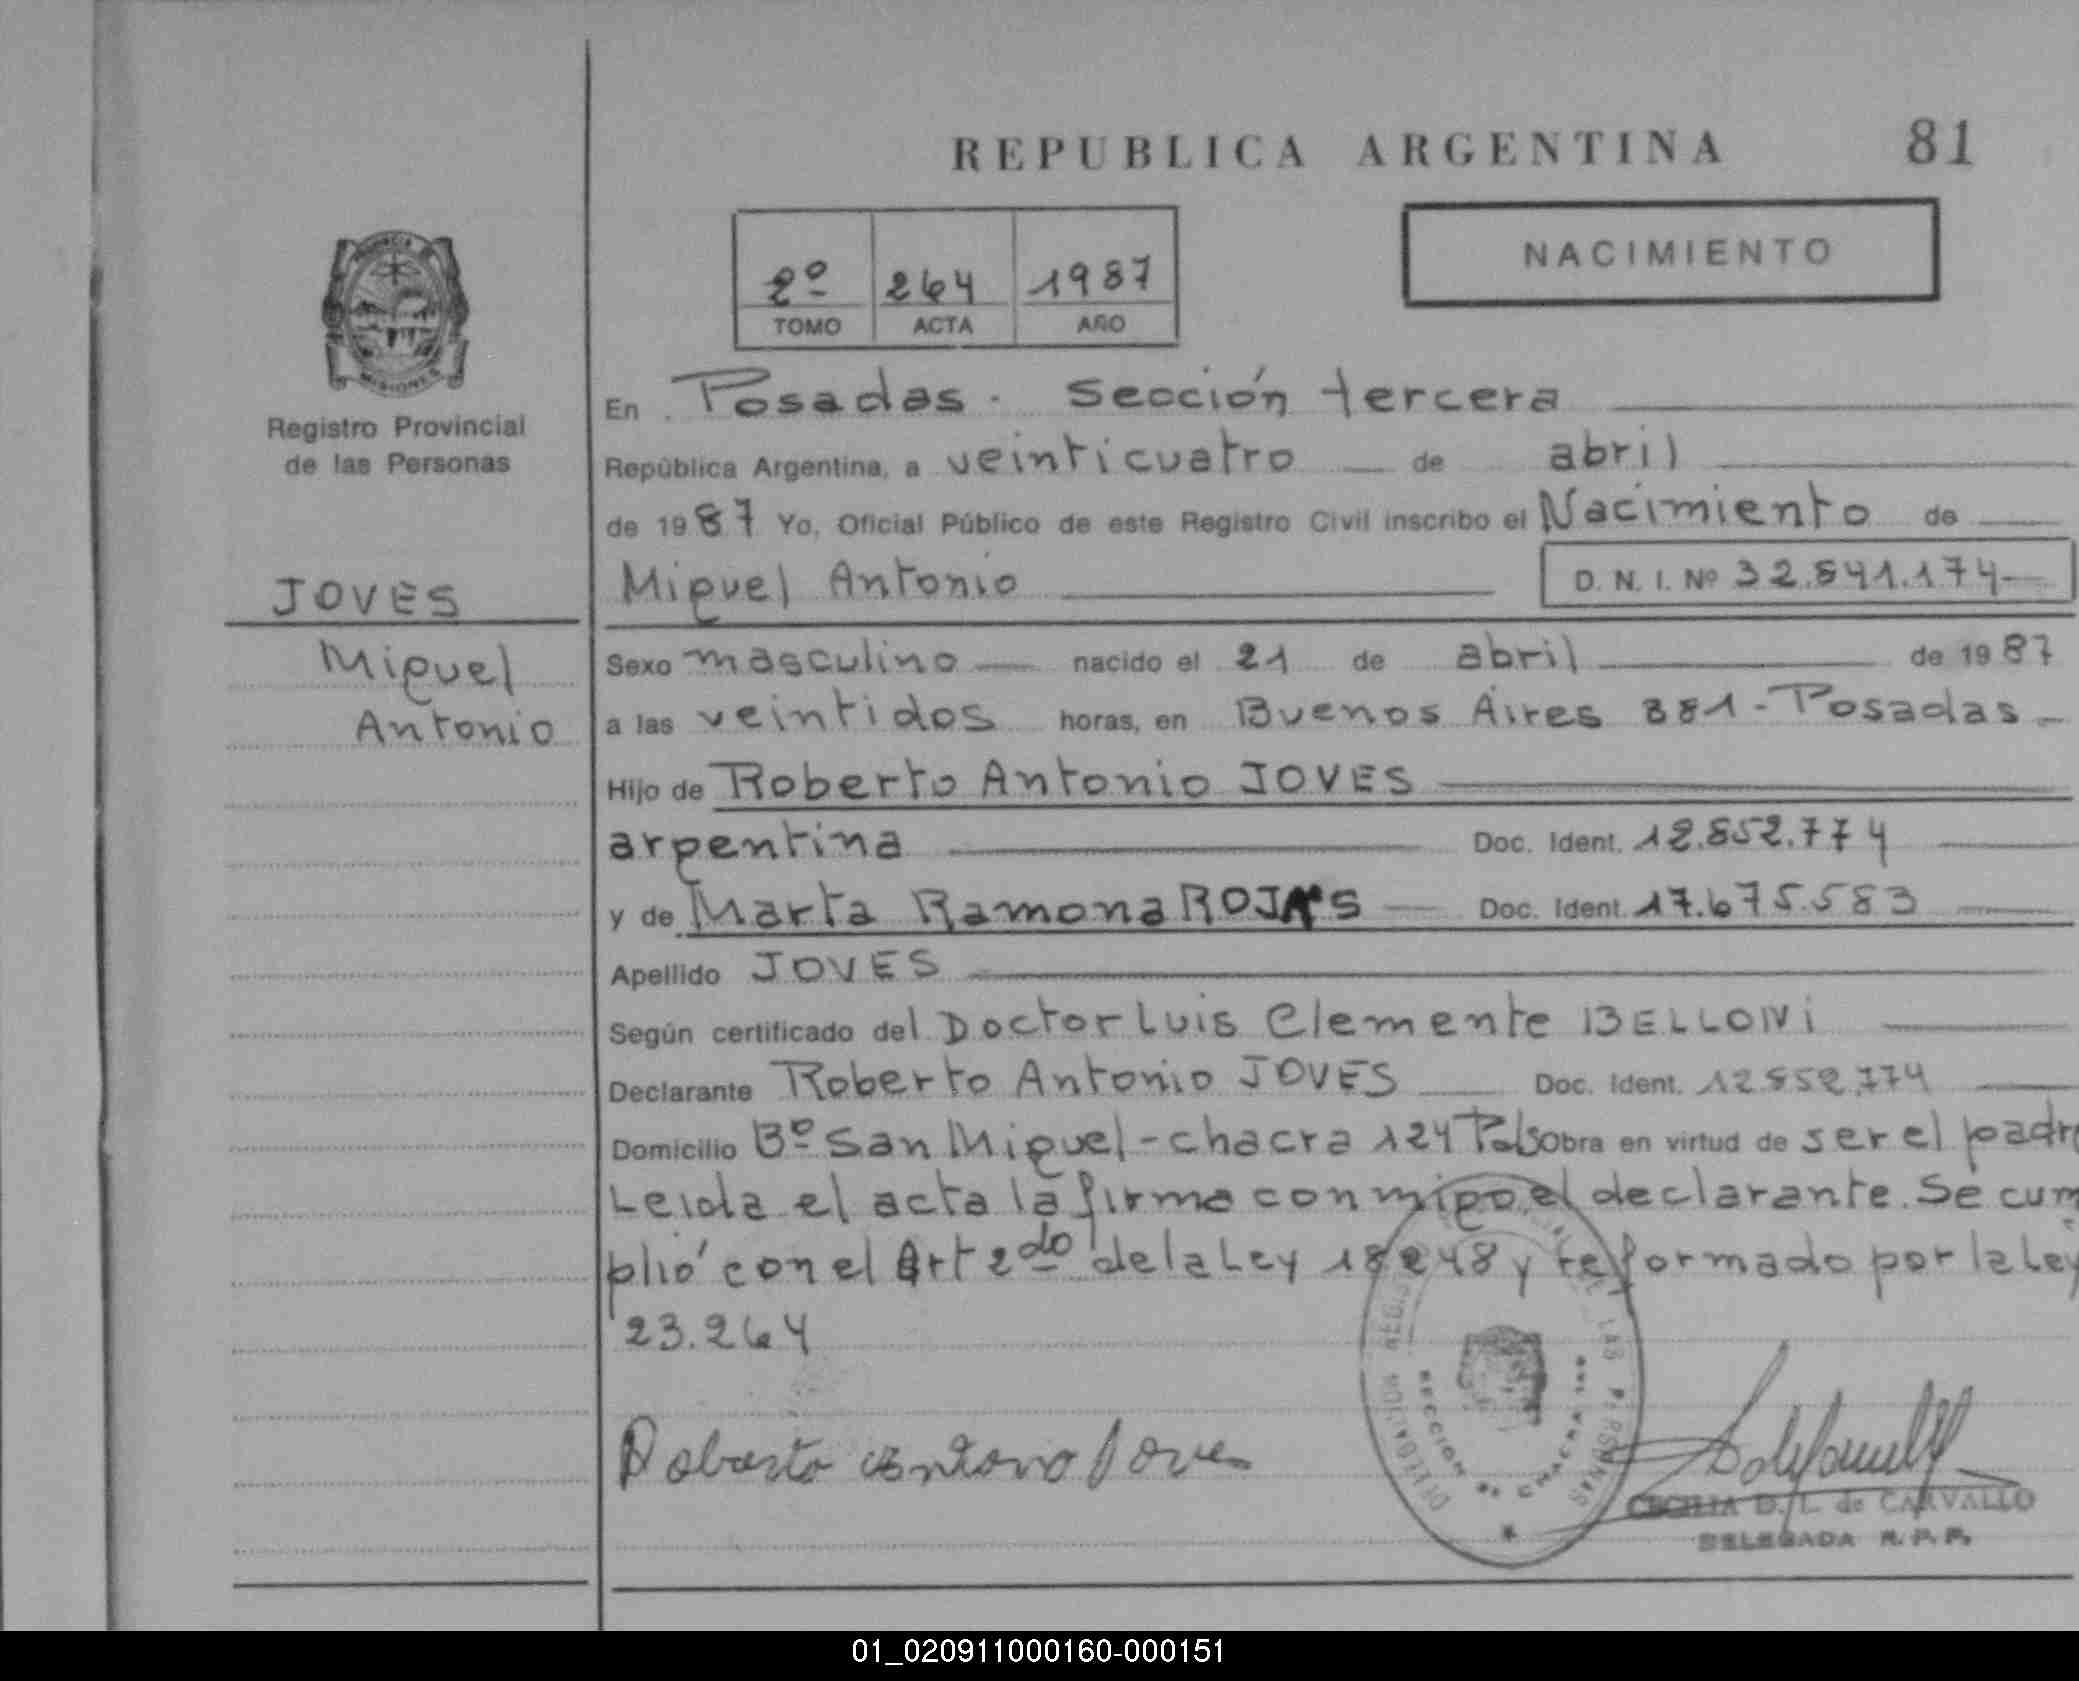 REPUBLICA ARGENTINA 81
2º 264 1987
TOMO ACTA AÑO
NACIMIENTO
MISIONES
Registro Provincial
de las Personas
JOVES
Miguel
Antonio
En Posadas. Sección tercera
República Argentina, a veinticuatro de abril
de 1987 Yo, Oficial Público de este Registro Civil inscribo el Nacimiento de
Miguel Antonio D. N. I. Nº 32.841.174
Sexo masculino nacido el 21 de abril de 1987
a las veintidos horas, en Buenos Aires 881-Posadas
Hijo de Roberto Antonio JOVES
argentina Doc. Ident. 12.852.774
y de Marta Ramona ROJAS Doc. Ident. 17.675.583
Apellido JOVES
Según certificado del Doctor Luis Clemente BELLONI
Declarante Roberto Antonio JOVES Doc. Ident. 12852.774
Domicilio Bº San Miguel-chacra 124 obra en virtud de ser el padr
Leida el acta la firma conmigo el declarante. Se cum
plió con el Art 2do de la Ley 18248 y reformado por la Ley
23.264
Roberto Antonio Joves
CECILIA D. L. de CARVALLO
DELEGADA R. P. P.
01_020911000160-000151